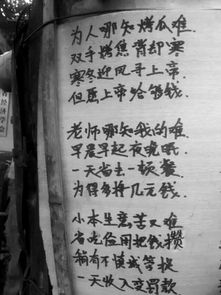 为人哪知烤瓜难
双手烤焦背却寒
寒冬迎风寻上帝
但愿上帝给够钱
老师哪知我的难
早晨早起夜晚眠
一天省去一顿餐
为得多挣几元钱
小本生意苦又难
省吃俭用把钱攒
稍有不慎城管提
一天收入变罚款
经济学会